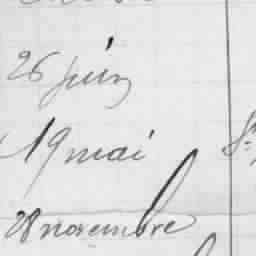 26 juin
19 mai
28 novembre